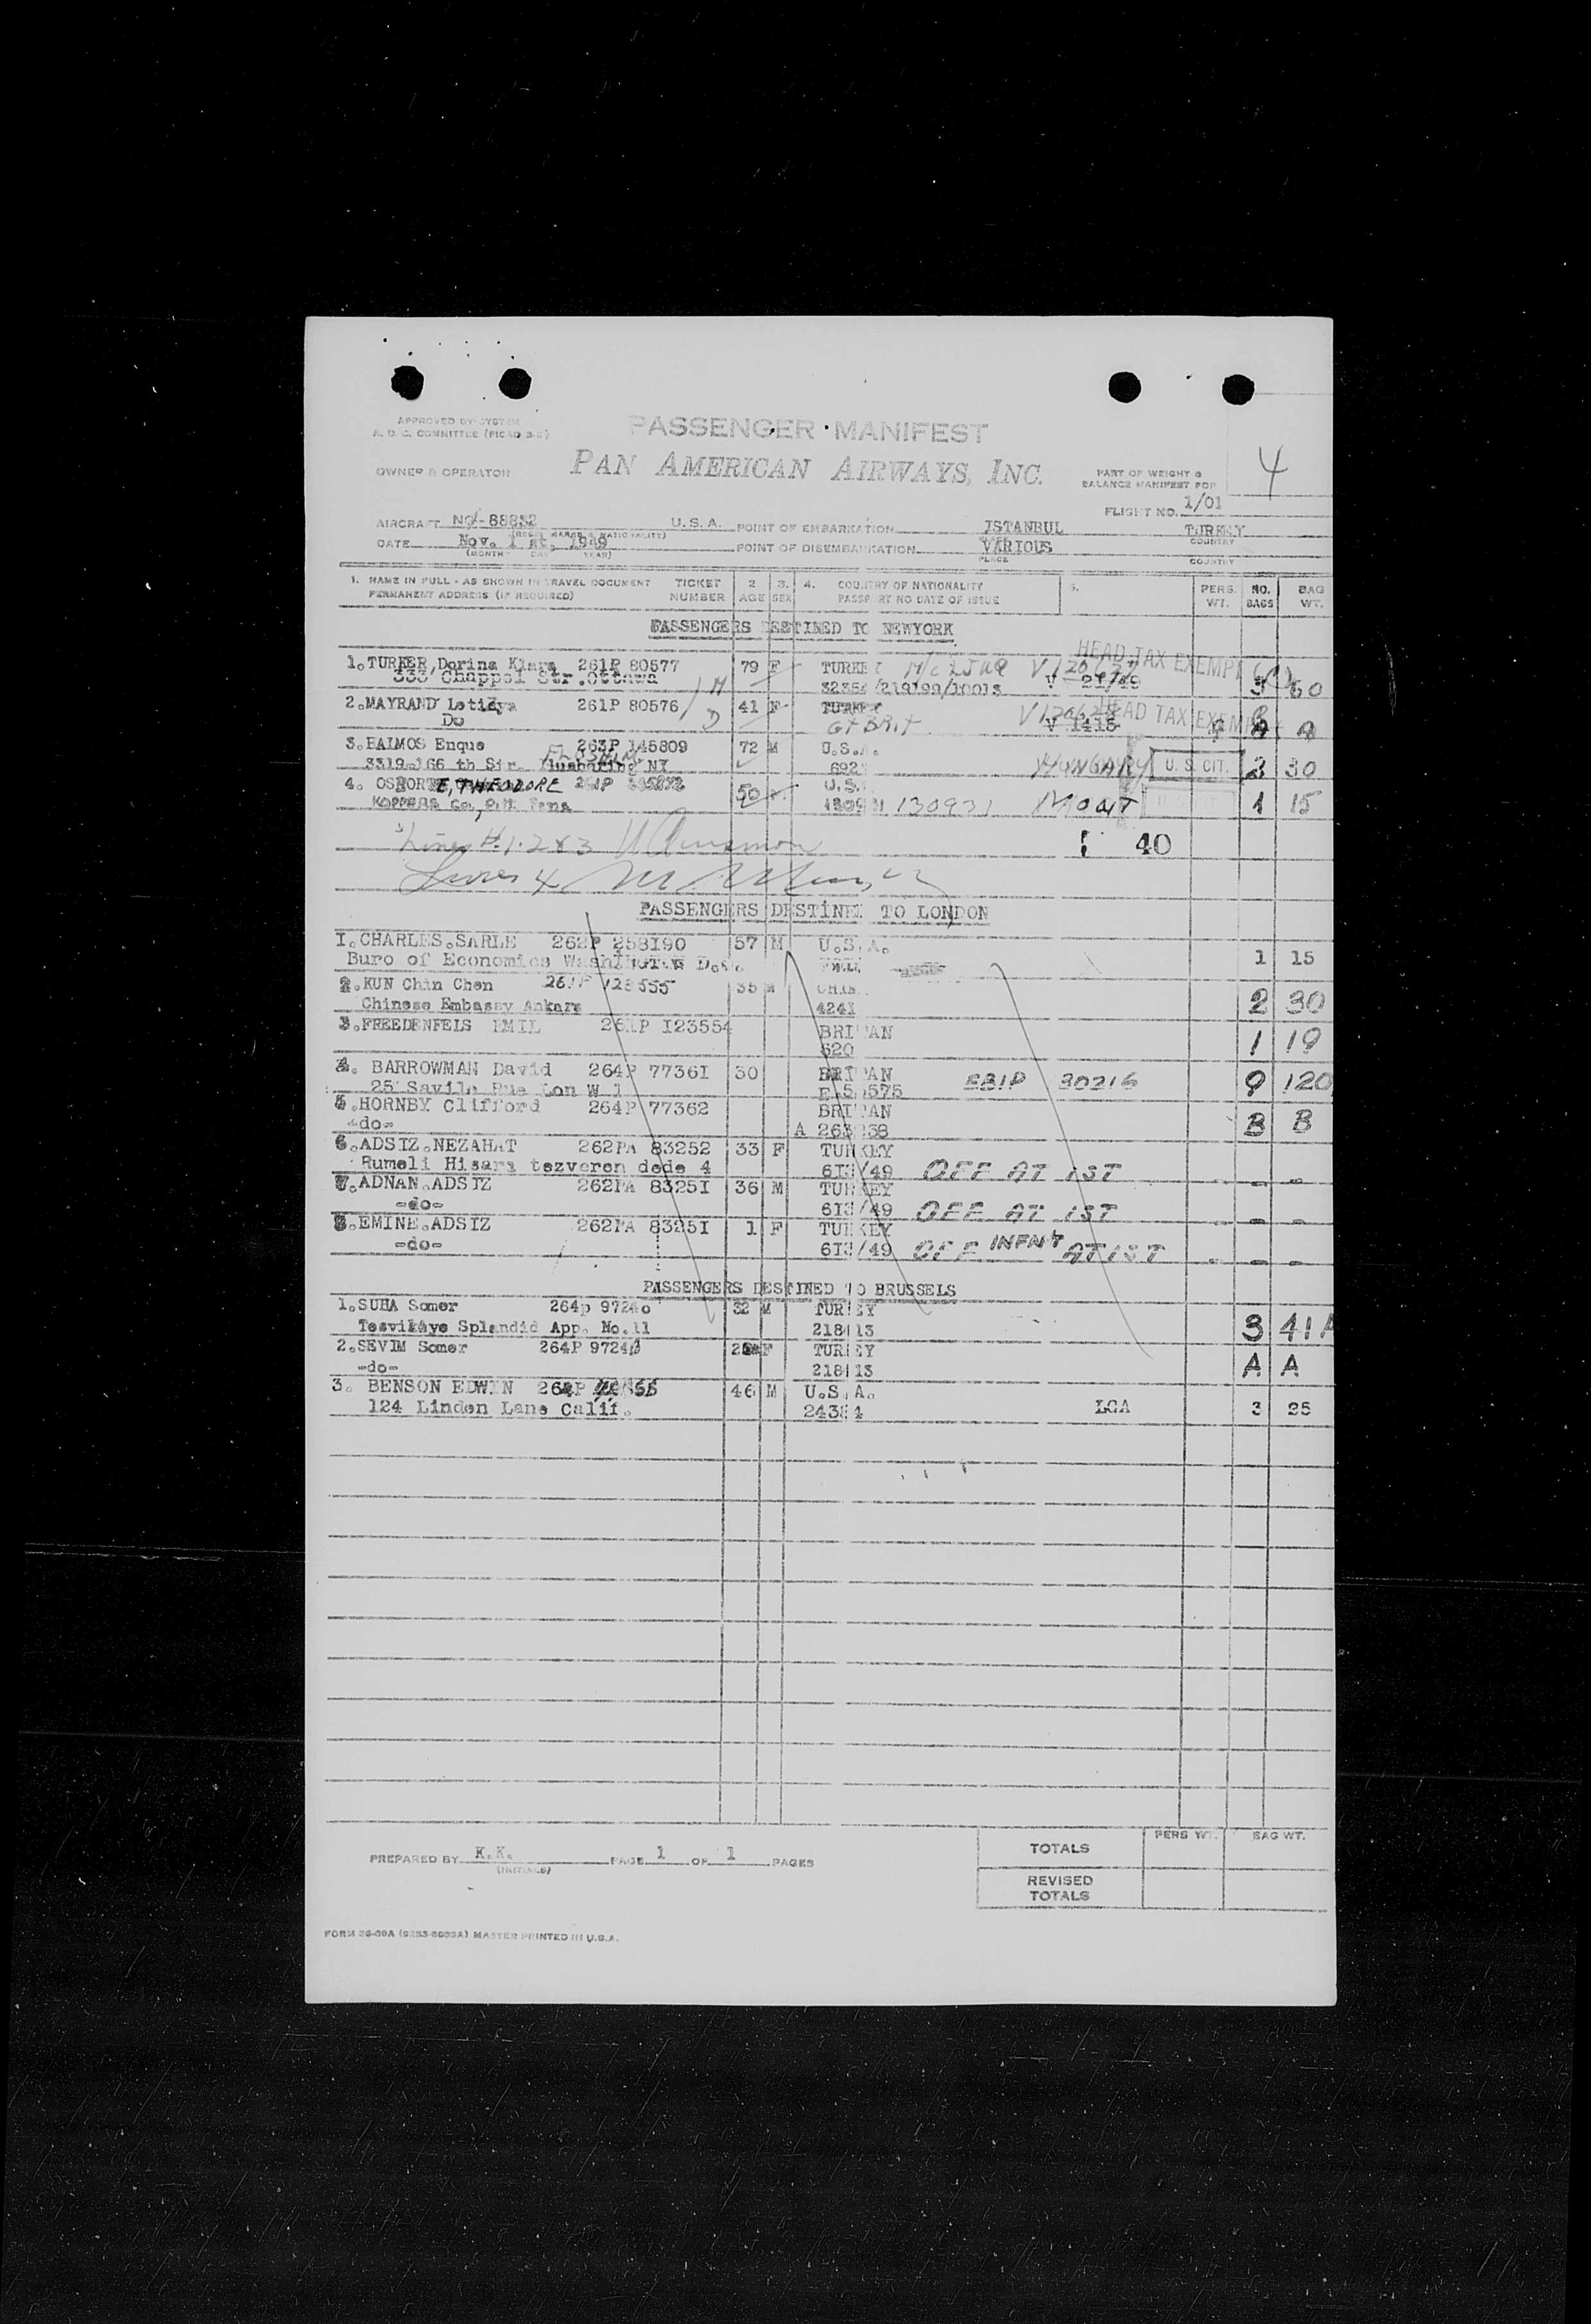 APPROVED BY SYSTEM
A. D. C. COMMITTEE (PICAO 3-2)
PASSENGER MANIFEST
OWNER & OPERATOR
PAN AMERICAN AIRWAYS, INC.
PART OF WEIGHT &
BALANCE MANIFEST FOR
4
FLIGHT NO. 1/01
AIRCRAFT 88832 U. S. A. POINT OF EMBARKATION ISTANBUL TURKEY
PLACE COUNTRY
DATE Nov. 1 st, 1949 POINT OF DISEMBARKATION VARIOUS
(MONTH DAY YEAR) PLACE COUNTRY
1. NAME IN FULL - AS SHOWN IN TRAVEL DOCUMENT TICKET 2 3. 4. COUNTRY OF NATIONALITY 5. PERS. NO. BAG
PERMANENT ADDRESS (IF REQUIRED) NUMBER AGE SEX PASSPORT NO DATE OF ISSUE WT. BAGS WT.
PASSENGERS DESTINED TO NEWYORK
HEAD TAX EXEMPT
1. TURKER, Dorina Klara 261P 80577 79 F TURKEY
333 Chappel Str. Ottawa 3 60
2. MAYRAND Letidya 261P 80576 41 F TURKEY HEAD TAX EXEMPT
Do Gt BRIt V 1415 A A
3. BALMOS Enque 263P 145809 72 M U.S.A.
3319-166 th Str. NY FLUSHING HUNGARY U. S. CIT. 2 30
4. OSBORTE, THEODORE 50 U.S.
Koppers Co, Penna 130931 MONT 1 15
Lines 1.2&3
40
Lines 4
PASSENGERS DESTINED TO LONDON
I. CHARLES. SARLE 262P 258I90 57 M U.S.A.
Buro of Economics WashINGTON D.C. 1 15
2. KUN Chin Chen 35 M
Chinese Embassy Ankara 4241 2 30
3. FREEDENFELS EMIL 261P I23554 BRITAN
620 1 19
4. BARROWMAN David 264P 7736I 30 BRITAN
25 Savile Rue Lon W 1 EBIP 30216 9 120
5. HORNBY Clifford 264P 77362 BRITAN
-do- A 263238 B B
6. ADSIZ. NEZAHAT 262PA 83252 33 F TURKEY
Rumeli Hisara tezveren dede 4 6I3/49 OFF AT IST - -
7. ADNAN. ADSIZ 262PA 8325I 36 M TURKEY
-do- 6I3/49 OFF AT IST - -
8. EMINE. ADSIZ 262PA 8325I 1 F TURKEY
-do- 6I3/49 OFF INFNT AT IST - - -
PASSENGERS DESTINED TO BRUSSELS
1. SUHA Somer 264p 9724o 32 M TURKEY
Tesvikiye Splendid App. No.11 218113 3 41A
2. SEVIM Somer 264P F TURKEY
-do- 218113 A A
3. BENSON EDWIN 46 M U.S.A.
124 Linden Lane Calif. LGA 3 25
PREPARED BY K.K. PAGE 1 OF 1 PAGES
(INITIALS)
PERS WT. BAG WT.
TOTALS
REVISED
TOTALS
MASTER PRINTED IN U.S.A.